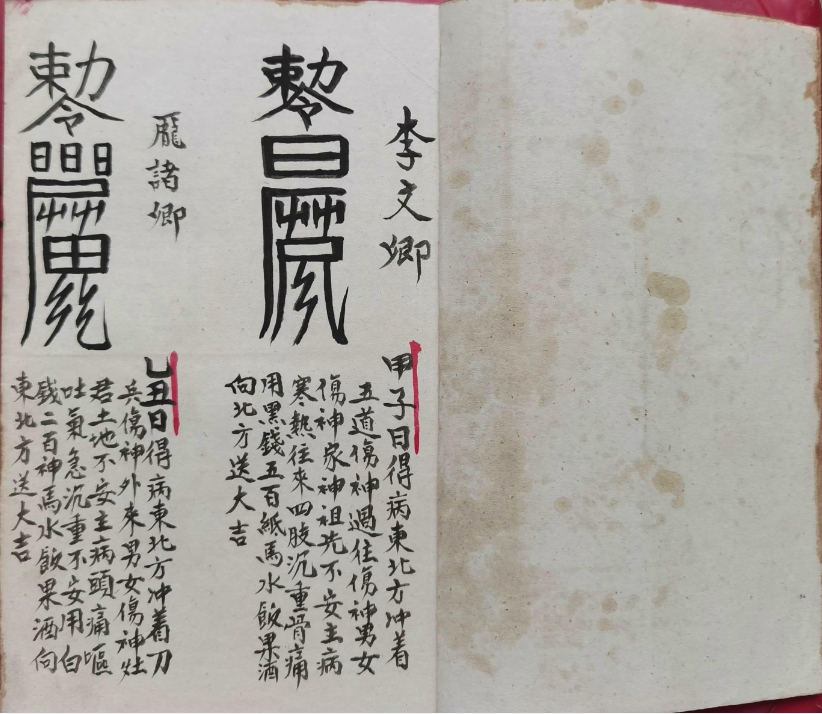 李文卿
敕令
甲子日得病東北方冲着
五道傷神過往傷神男女
傷神家神祖先不安主病
寒熱往來四肢沉重骨痛
用黑錢五百紙馬水飯果酒
向北方送大吉
龎諸卿
敕令
乙丑日得病東北方冲着刀
兵傷神外來男女傷神灶
君土地不安主病頭痛嘔
吐氣急沉重不安用白
錢二百神馬水飯果酒向
東北方送大吉